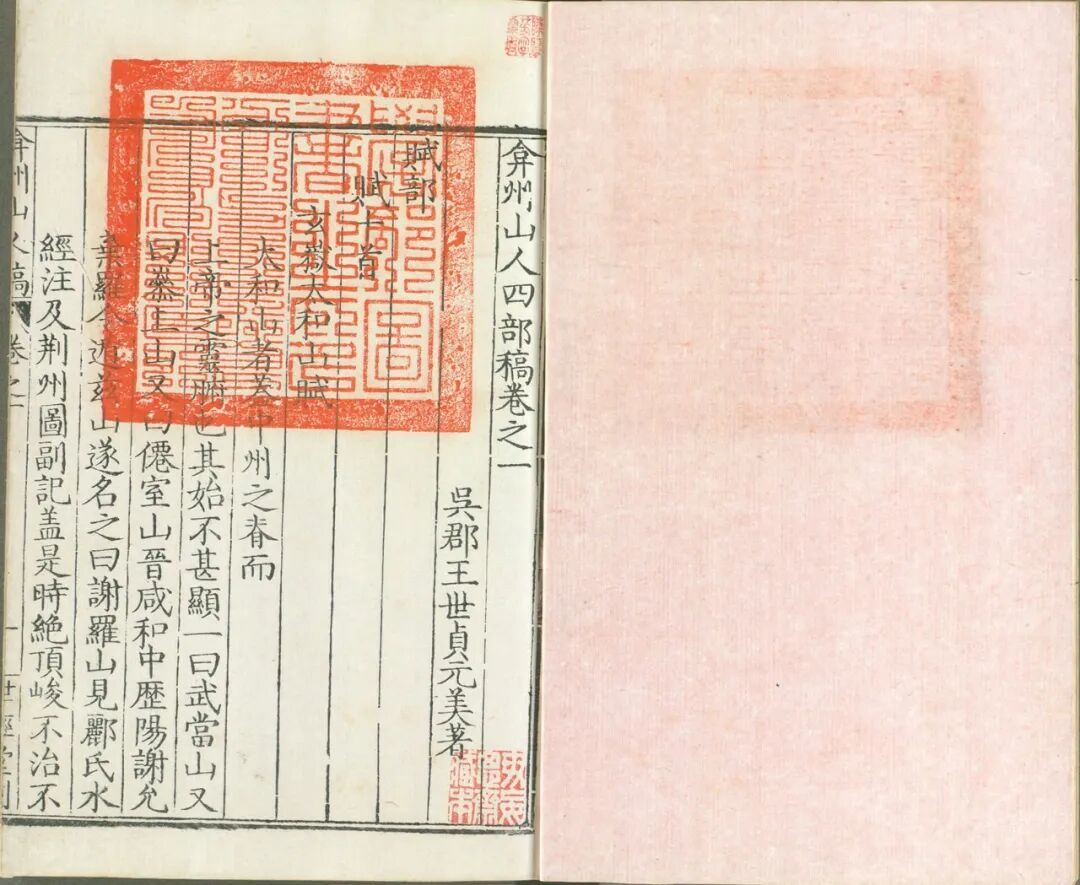 弇州山人四部稿卷之一
吳郡王世貞元美著
賦部
賦十首
玄嶽太和山賦
太和山者蓋中州之脊而
上帝之靈腑也其始不甚顯一曰武當山又
曰篸上山又曰僊室山晉咸和中歷陽謝允
棄羅令遊茲山遂名之曰謝羅山見酈氏水
經注及荆州圖副記盖是時絶頂峻不治不
弇州山人稿 卷之一 一 世經堂刻